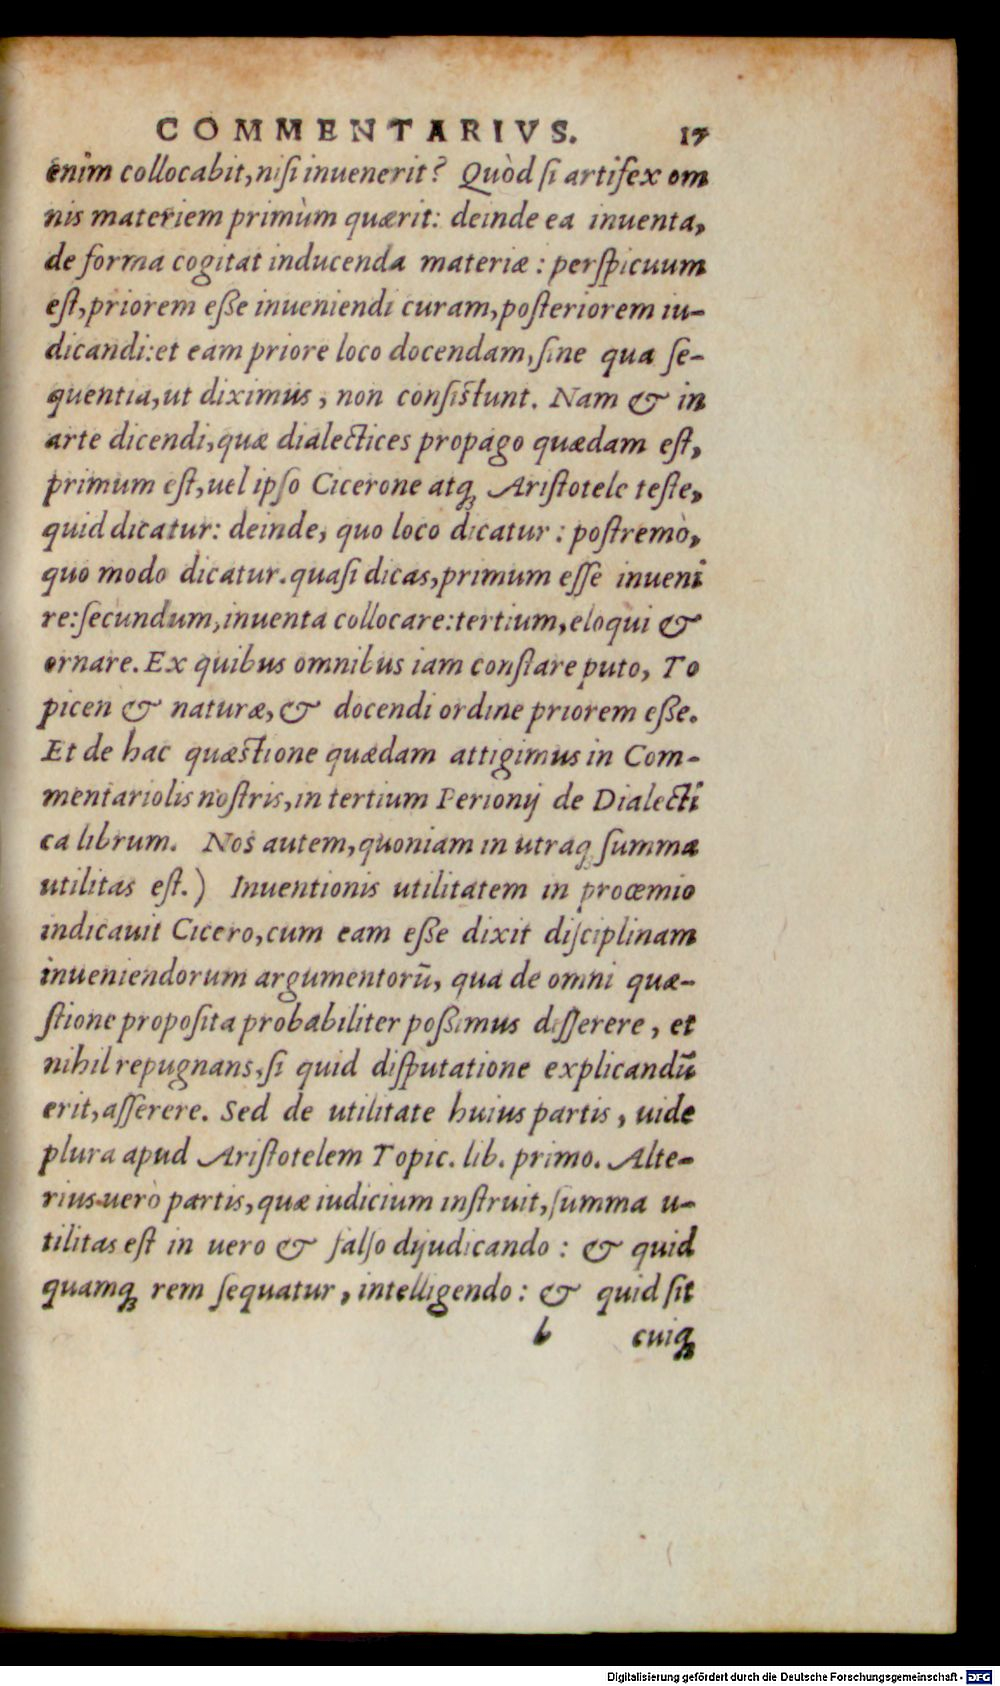 COMMENTARIVS. 17
enim collocabit, nisi inuenerit? Quòd si artifex om
nis materiem primùm quærit: deinde ea inuenta,
de forma cogitat inducenda materiæ: perspicuum
est, priorem esse inueniendi curam, posteriorem iu-
dicandi: et eam priore loco docendam, sine qua se-
quentia, ut diximus, non consistunt. Nam & in
arte dicendi, quæ dialectices propago quædam est,
primum est, uel ipso Cicerone atq; Aristotele teste,
quid dicatur: deinde, quo loco dicatur: postremò,
quo modo dicatur. quasi dicas, primum esse inueni
re: secundum, inuenta collocare: tertium, eloqui &
ornare. Ex quibus omnibus iam constare puto, To
picen & naturæ, & docendi ordine priorem esse.
Et de hac quæstione quædam attigimus in Com-
mentariolis nostris, in tertium Perionij de Dialecti
ca librum. Nos autem, quoniam in utraq; summa
utilitas est.) Inuentionis utilitatem in proœmio
indicauit Cicero, cum eam esse dixit disciplinam
inueniendorum argumentorū, qua de omni quæ-
stione proposita probabiliter possimus disserere, et
nihil repugnans, si quid disputatione explicandū
erit, asserere. Sed de utilitate huius partis, uide
plura apud Aristotelem Topic. lib. primo. Alte-
rius uerò partis, quæ iudicium instruit, summa u-
tilitas est in uero & falso dijudicando: & quid
quamq; rem sequatur, intelligendo: & quid sit
b cuiq;
Digitalisierung gefördert durch die Deutsche Forschungsgemeinschaft - DFG